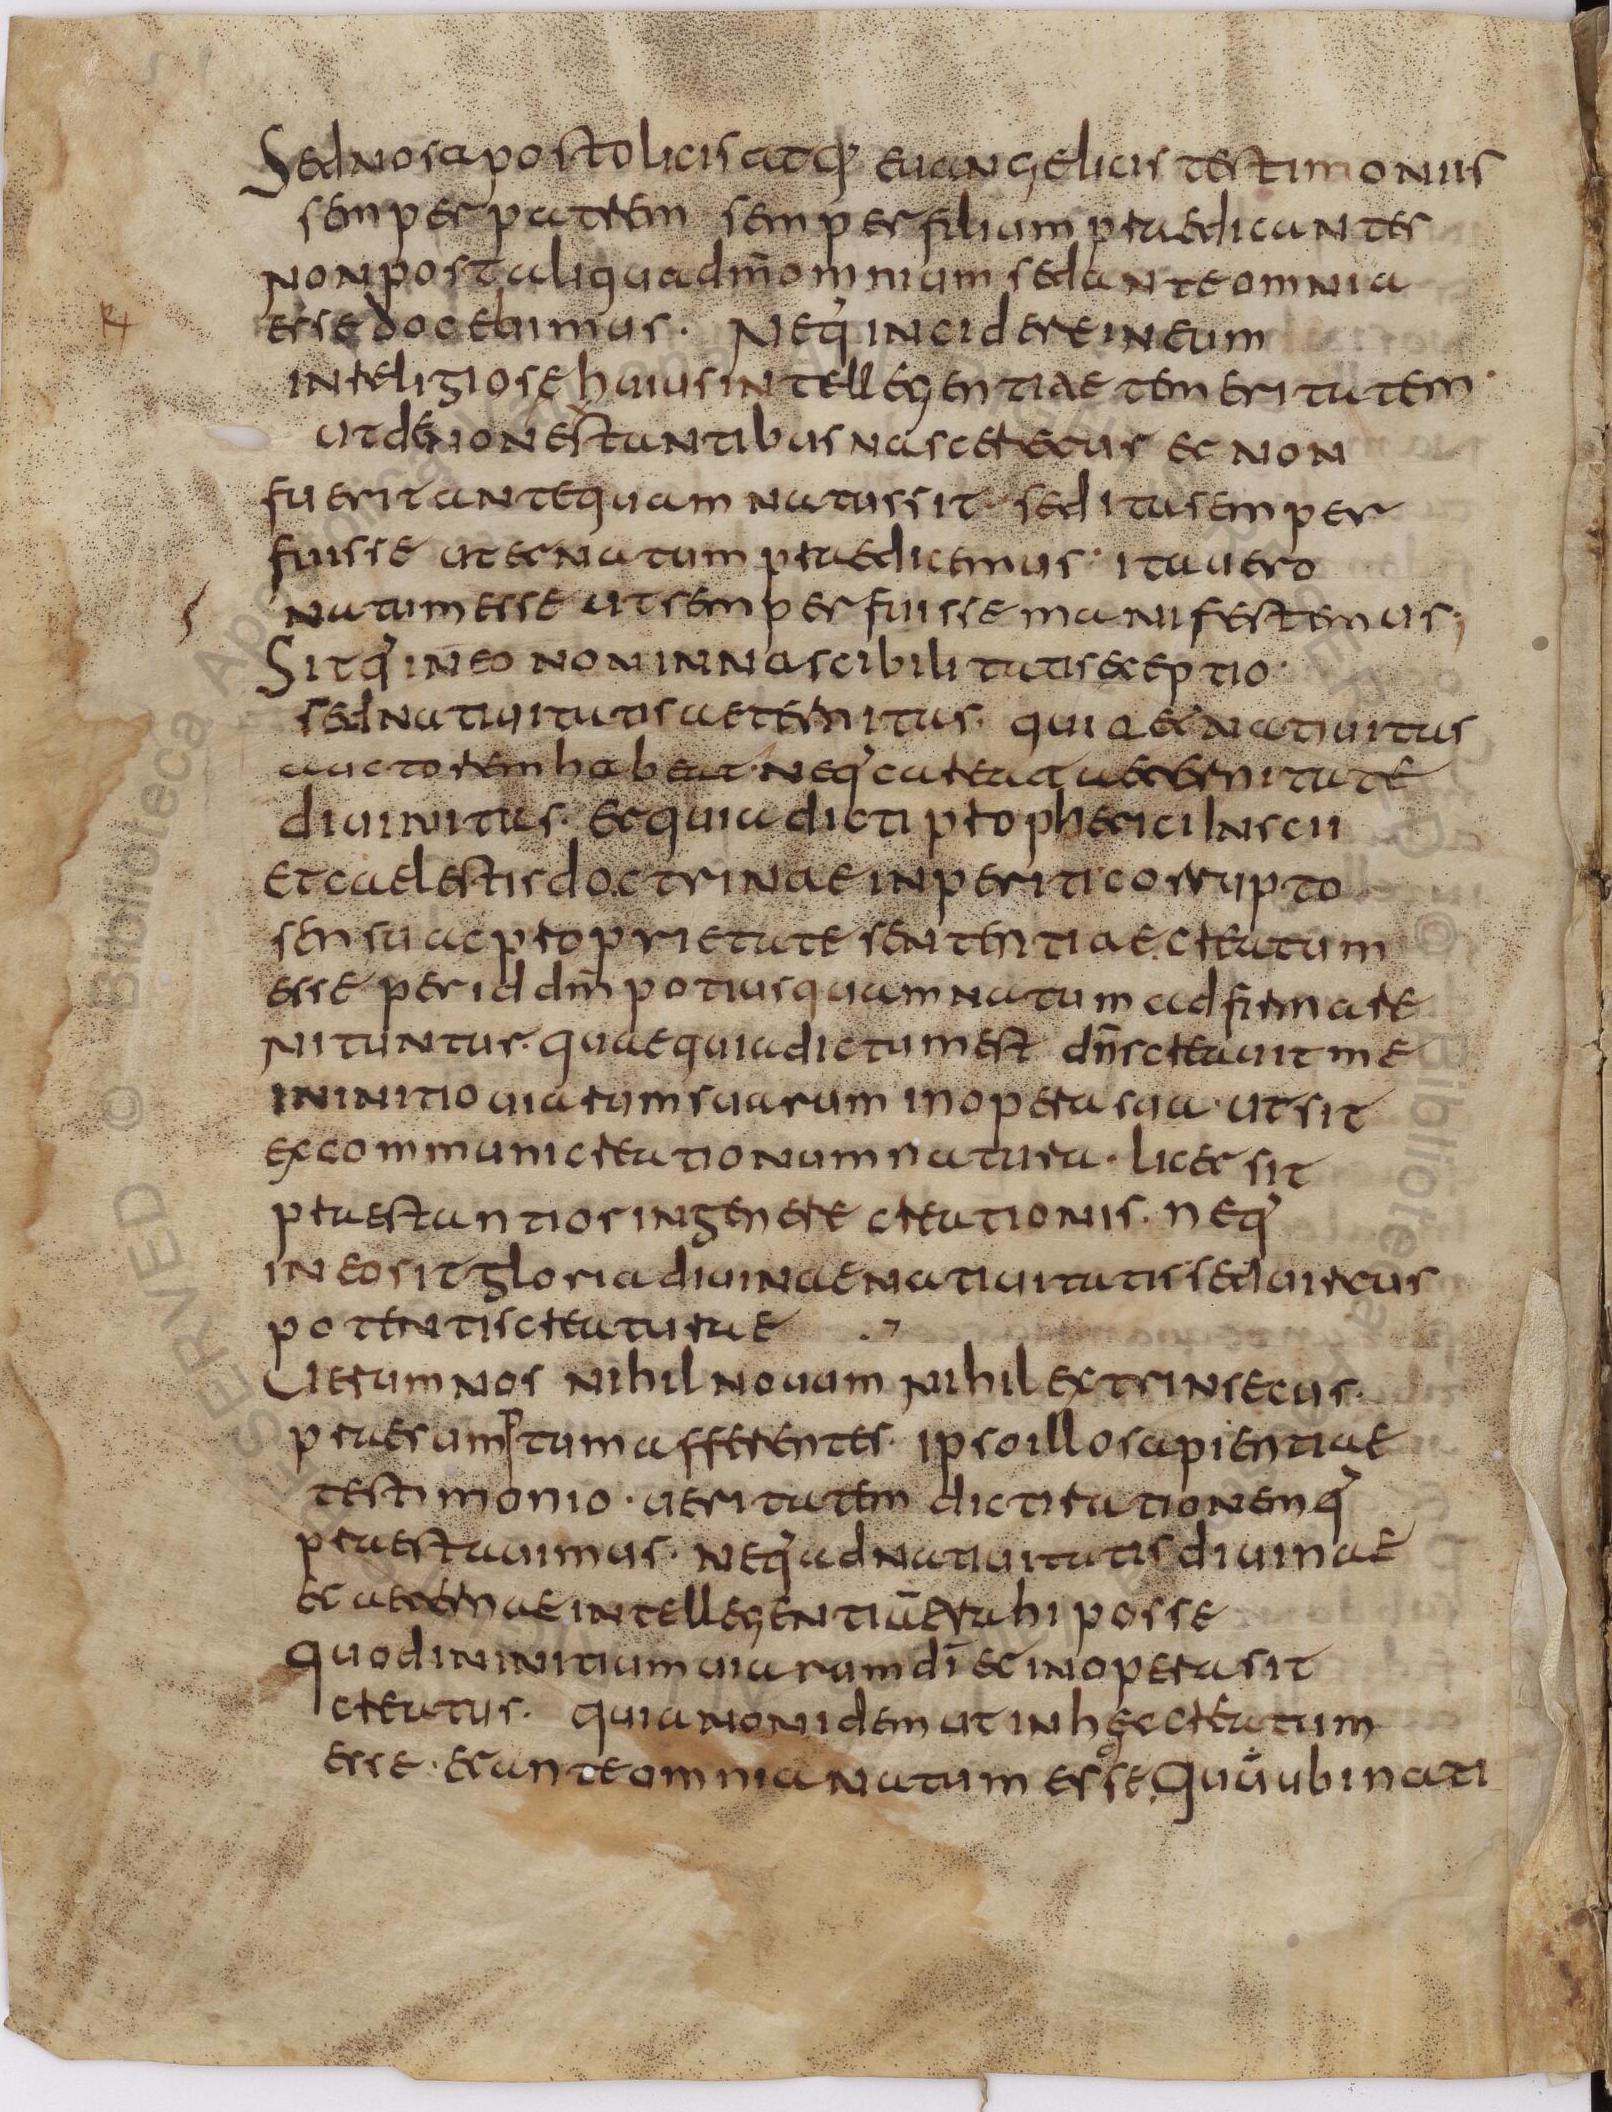 Sed nos apostolicis atq; euangelicis testimoniis
semper patrem semper filium praedicantes
non post aliqua dm̄ omnium sed ante omnia
esse docebimus. Neq; incidere in eum
inreligiose huius intellegentiae temeritatem
ut de non estantibus nasceretur et non
fuerit antequam natus sit. sed ita semper
fuisse ut et natum praedicemus. ita uero
natum esse ut semper fuisse manifestemus.
Sitq; in eo non innascibilitatis exceptio.
sed natiuitatis aeternitas. quia et natiuitas
auctorem habeat. neq; careat aeternitate
diuinitas. et quia dicti prophetici inscii
et caelestis doctrinae inperiti corrupto
sensu ac proprietate sententiae creatum
esse per id dm̄ potius quam natum adfirmare
nituntur. quae quia dictum est dn̄s creauit me
in initio uiarum suarum in opera sua. ut sit
ex communi creationum natura. licet sit
praestantior in genere creationis. neq;
in eo sit gloria diuinae natiuitatis sed uirtus
potentis creaturae
Uerum nos nihil nouum nihil extrinsecus.
praesumptum afferentes. ipso illo sapientiae
testimonio. ueritatem dicti rationemq;
praestauimus. neq; ad natiuitatis diuinae
et aeternae intellegentiā trahi posse
quod in initium uiarum dī et in opera sit
creatus. quia non idem ut in hęc creatum
esse. et ante omnia natum esse. Quia ubi nati